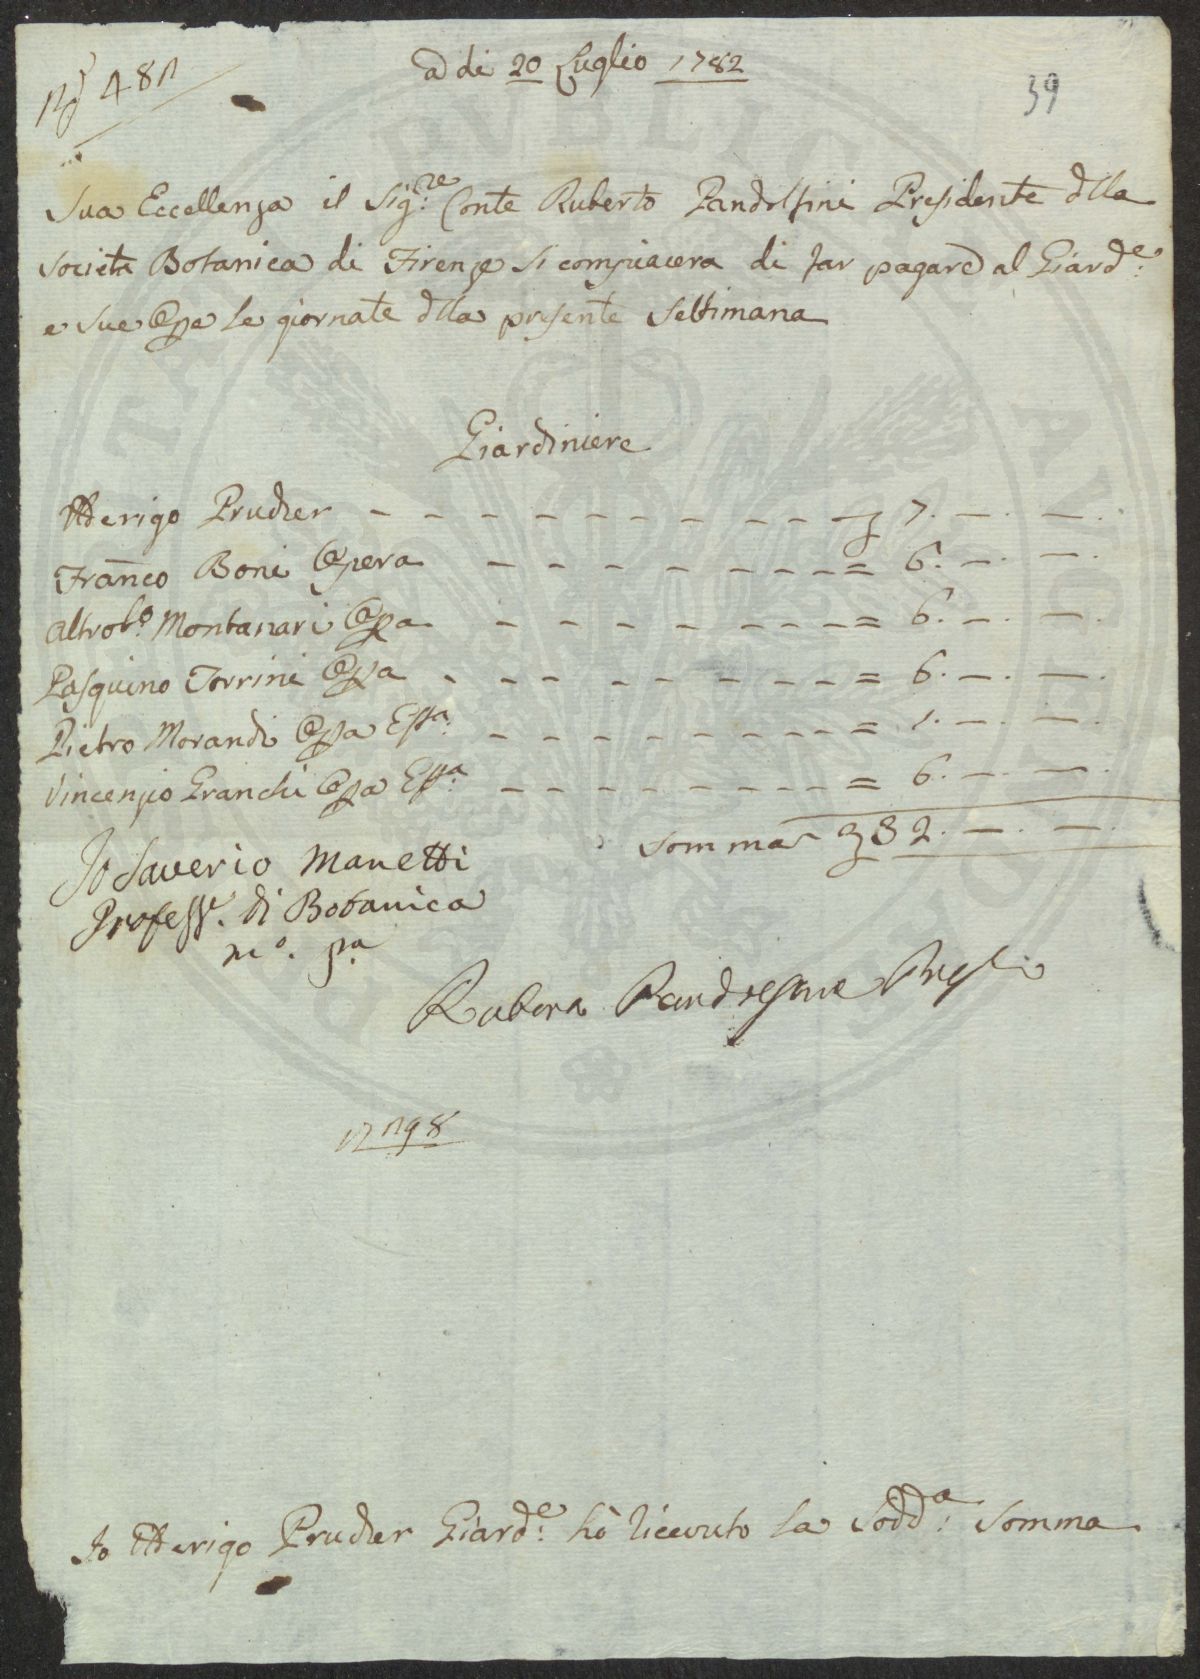 N.o 481
a di 20 Luglio 1782
39
Sua Eccellenza il Sig:re Conte Ruberto Pandolfini Presidente dlla
Società Botanica di Firenze si compiacera di far pagare al Giard:e
e sue Ope le giornate dlla presente Settimana
Giardiniere
Atterigo Prucher - - - - - - - - - - - £ 7. —. —.
Franco Boni Opera - - - - - - - - = 6. —. —.
Altrob:o Montanari Opa - - - - - - - - = 6. —. —.
Pasquino Torrini Opa - - - - - - - - - = 6. —. —.
Pietro Morandi Opa Espa: - - - - - - - - = 1. —. —.
Vincenzio Granchi Opa Espa: - - - - - - - - = 6. —. —.
Somma £ 32. —. —.
Io Saverio Manetti
Profess.e di Botanica
m.o p.a
Pandolfini
Io Atterigo Prucher Giard:e hò ricevuto la Sodd:a Somma